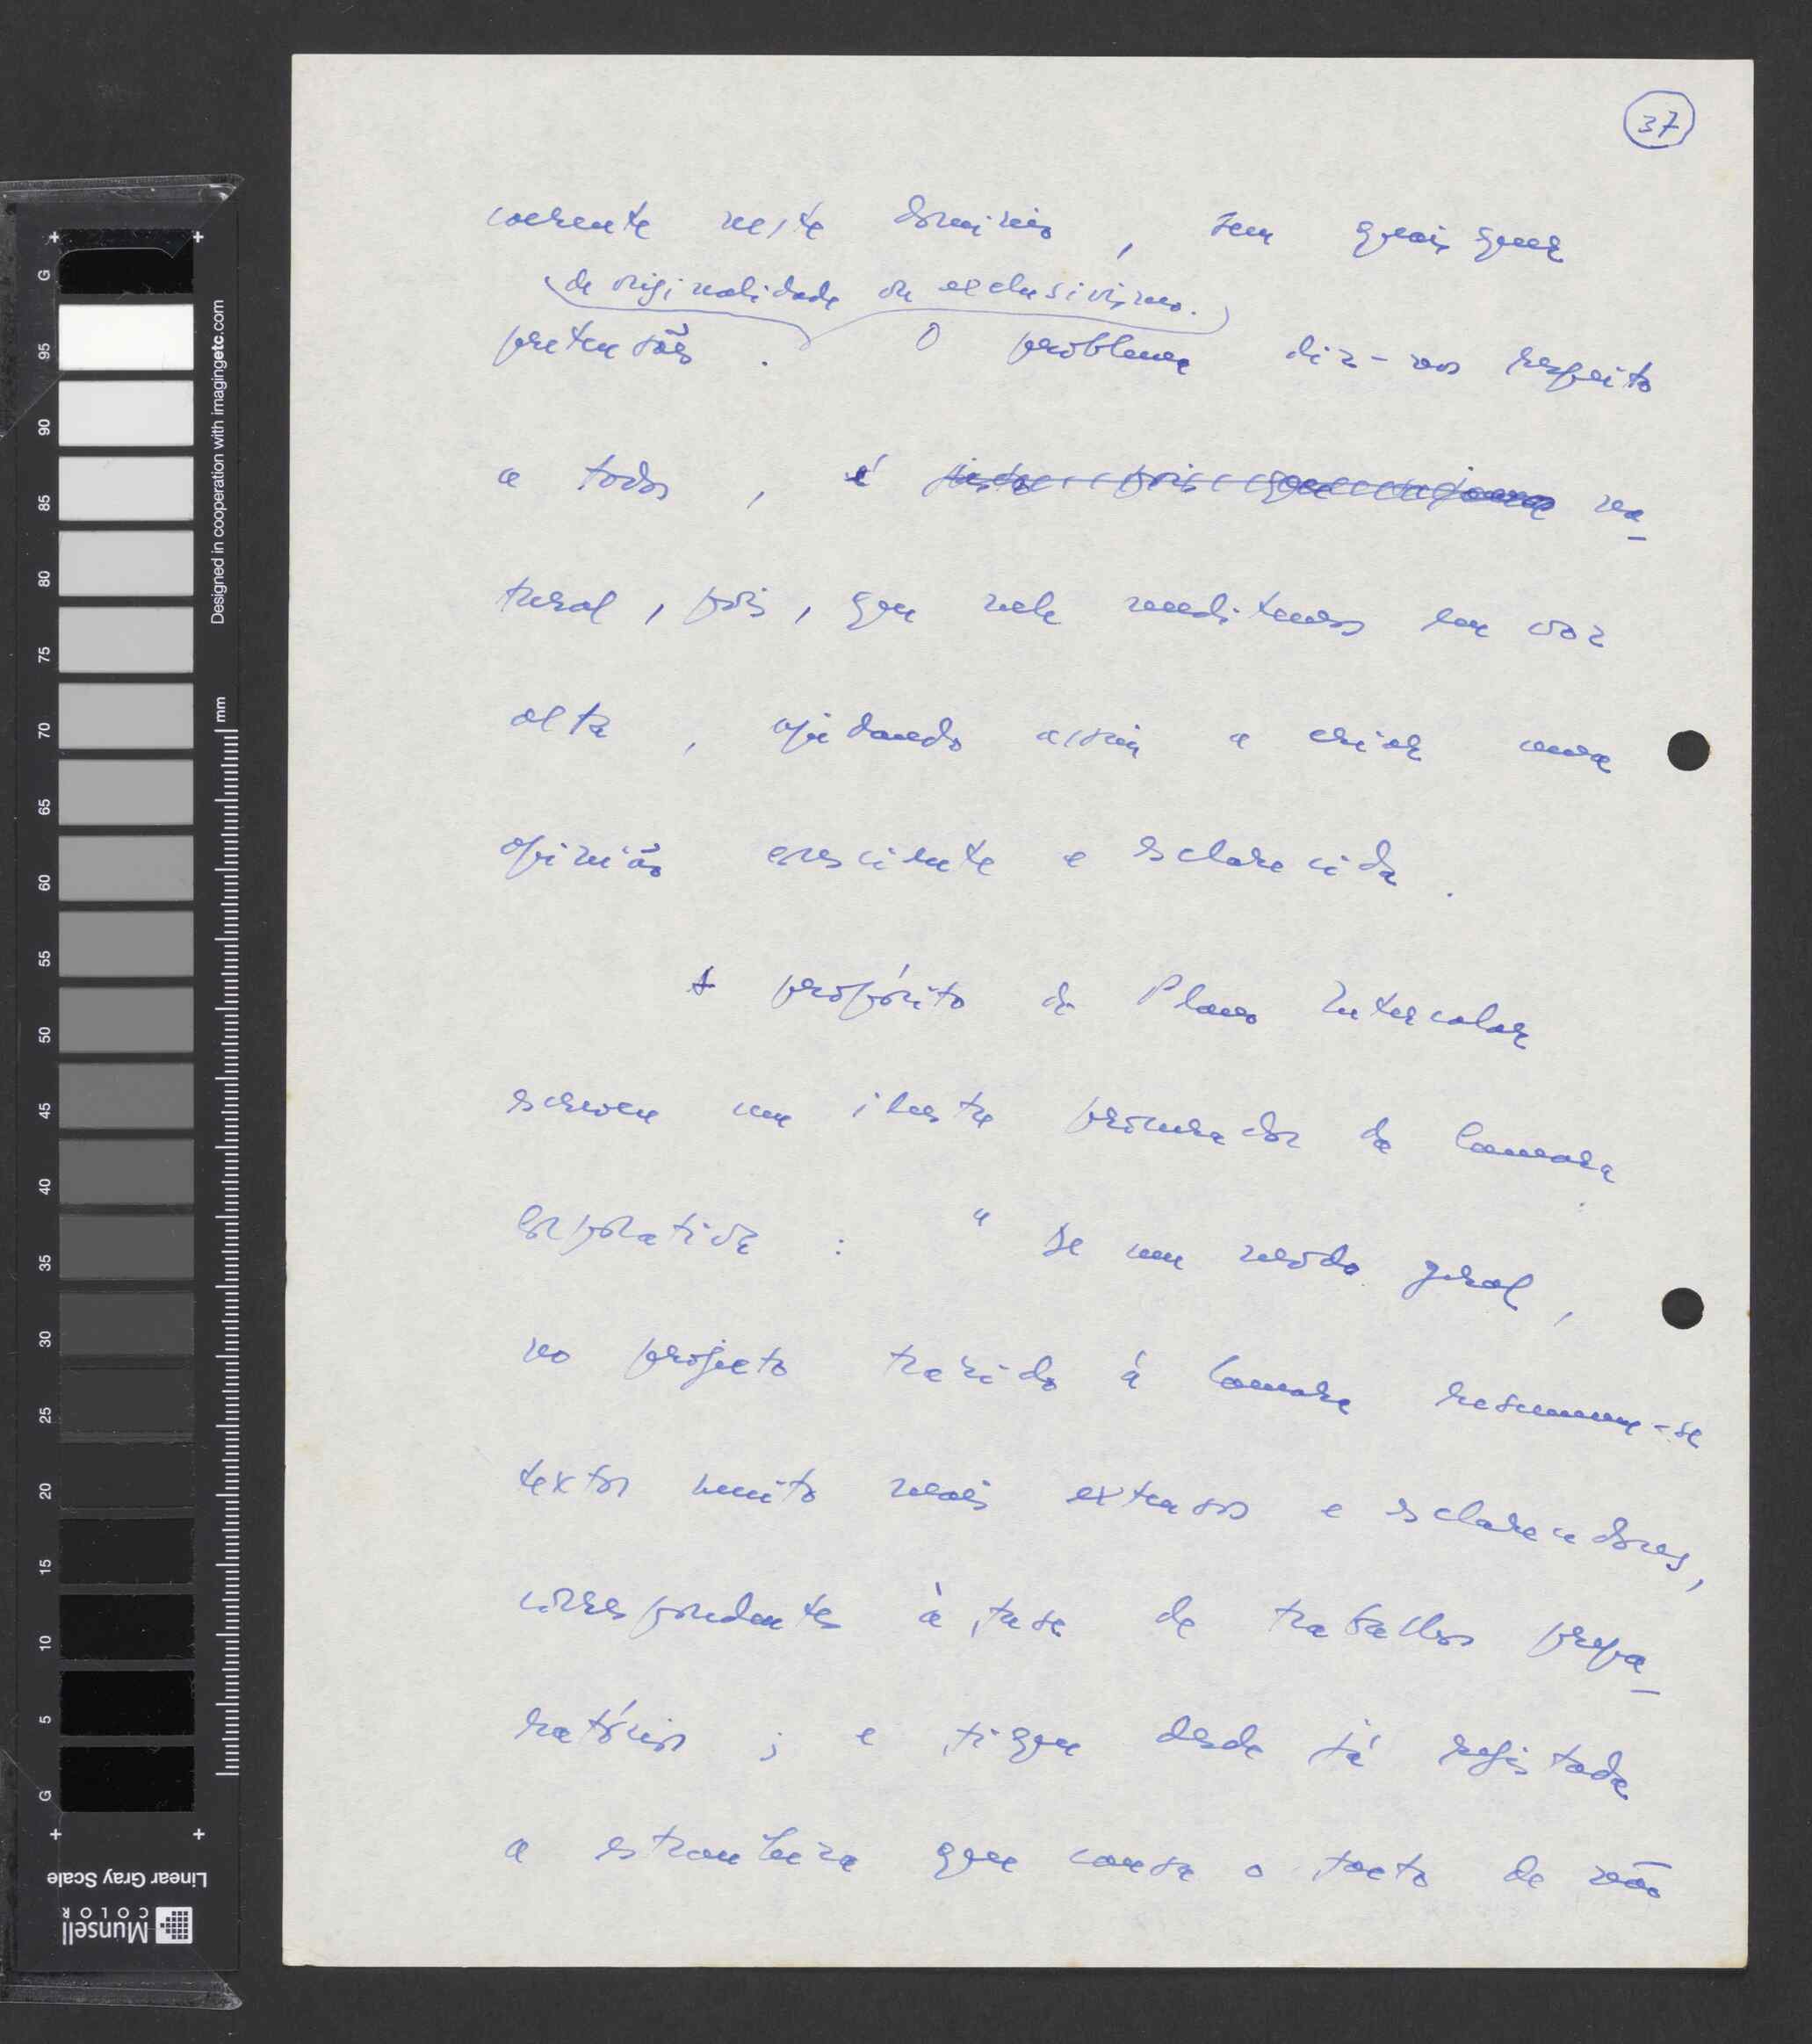 37
coerente neste domínio, sem quaisquer
de originalidade ou exclusivismo.
pretensões. O problema diz-nos respeito
a todos, é na-
tural, pois, que nele meditemos em voz
alta, ajudando assim a criar uma
opinião crescente e esclarecida.
A propósito do Plano Intercalar
escreveu um ilustre procurador da Camara
Corporativa: "De um modo geral,
no projecto trazido à Camara resumem-se
textos muito mais extensos e esclarecedores,
correspondentes à fase de trabalhos prepa-
ratórios; e fique desde já registada
a estranheza que causa o facto de não
G 95 90 85 80 75 70 65 60 55 50 45 40 35 30 25 20 15 10 5 G
Designed in cooperation with imagingetc.com
mm
Linear Gray Scale
Munsell
COLOR